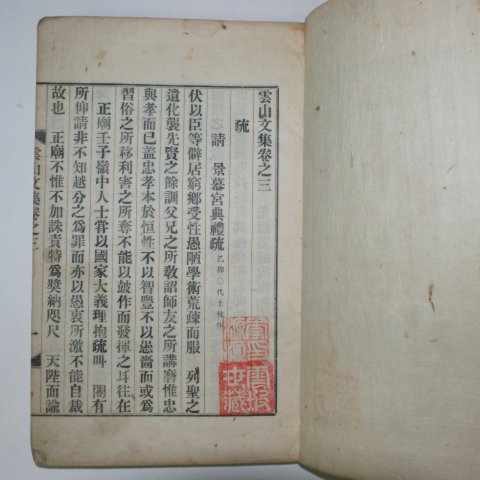 雲山文集卷之三
疏
請 景慕宮典禮疏 乙卯○代士林作
伏以臣等僻居窮鄉受性愚陋學術荒疎而服 列聖之
遺化襲先賢之餘訓父兄之所敎詔師友之所講磨惟忠
與孝而已盖忠孝本於恒性不以智豐不以愚嗇而或爲
習俗之所移利害之所奪不能以鼓作而發揮之耳往在
正廟壬子嶺中人士甞以國家大義理抱疏叫 閤有
所仰請非不知越分之爲罪而亦以愚衷所激不能自裁
故也 正廟不惟不加誅責特爲奬納咫尺 天陛面諭
雲山文集卷之三
一